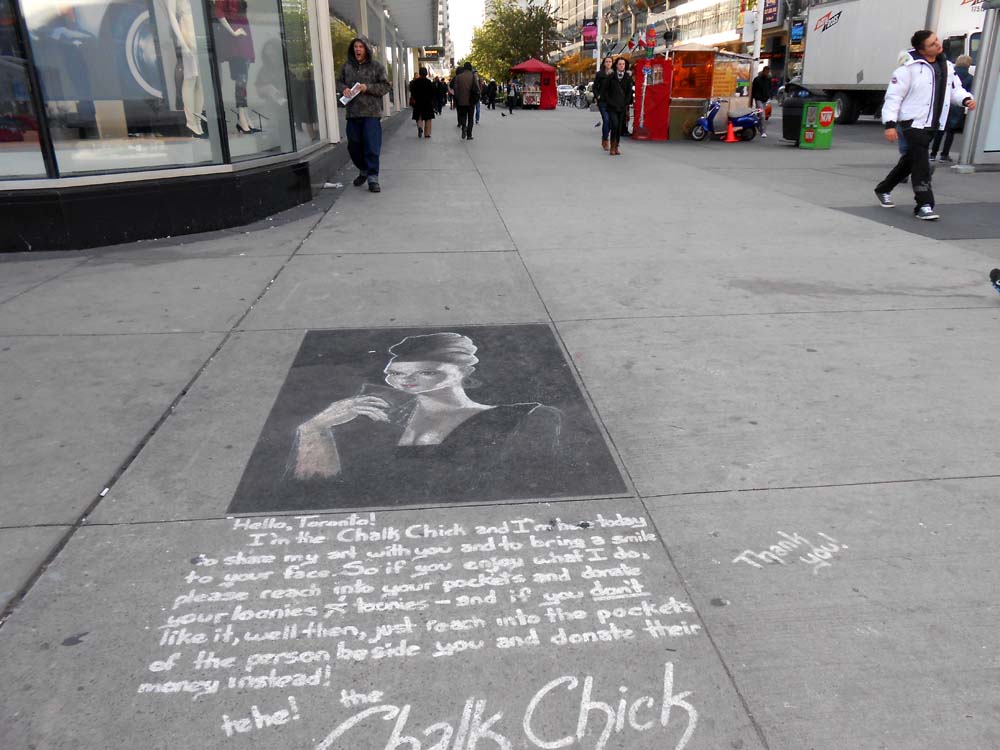 Hello, Toronto!
I'm the Chalk Chick and I'm here today
to share my art with you and to bring a smile
to your face. So if you enjoy what I do,
please reach into your pockets and donate
your loonies & toonies – and if you don't
like it, well then, just reach into the pockets
of the person beside you and donate their
money instead!
tehe!
the
Chalk Chick
Thank
you!
NOW